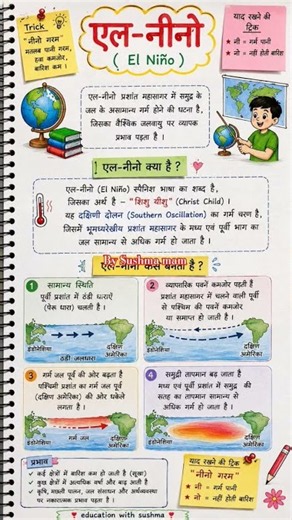 Trick
"नीनो गरम"
मतलब पानी गरम,
हवा कमजोर,
बारिश कम।
एल-नीनो
( El Niño )
याद रखने की
ट्रिक
★ नी = गर्म पानी
★ नो = नहीं होती बारिश
एल-नीनो प्रशांत महासागर में समुद्र के
जल के असामान्य गर्म होने की घटना है,
जिसका वैश्विक जलवायु पर व्यापक
प्रभाव पड़ता है।
एल-नीनो क्या है ?
एल-नीनो (El Niño) स्पैनिश भाषा का शब्द है,
जिसका अर्थ है - "शिशु यीशु" (Christ Child)।
यह दक्षिणी दोलन (Southern Oscillation) का गर्म चरण है,
जिसमें भूमध्यरेखीय प्रशांत महासागर के मध्य एवं पूर्वी भाग का
जल सामान्य से अधिक गर्म हो जाता है।
By Sushma mam
एल-नीनो कैसे बनता है ?
1 सामान्य स्थिति
पूर्वी प्रशांत में ठंडी धाराएँ
(पेरू धारा) चलती है।
इंडोनेशिया
ठंडी जलधारा
दक्षिण
अमेरिका
2 व्यापारिक पवनें कमजोर पड़ती है
प्रशांत महासागर में चलने वाली पूर्वी
से पश्चिम की पवनें कमजोर
या समाप्त हो जाती है।
इंडोनेशिया
दक्षिण
अमेरिका
3 गर्म जल पूर्व की ओर बढ़ता है
पश्चिमी प्रशांत का गर्म जल पूर्व
(दक्षिण अमेरिका) की ओर धकेले
लगता है।
इंडोनेशिया
गर्म जल
दक्षिण
अमेरिका
4 समुद्री तापमान बढ़ जाता है
मध्य एवं पूर्वी प्रशांत में समुद्र की
सतह का तापमान सामान्य से
अधिक गर्म हो जाता है।
इंडोनेशिया
दक्षिण
अमेरिका
प्रभाव
✓ कई क्षेत्रों में बारिश कम हो जाती है (सूखा)
✓ कुछ क्षेत्रों में अत्यधिक वर्षा और बाढ़ आती है
✓ कृषि, मछली पालन, जल संसाधन और अर्थव्यवस्था
पर नकारात्मक प्रभाव पड़ता है।
याद रखने की ट्रिक
"नीनो गरम"
★ नी = गर्म पानी
★ नो = नहीं होती बारिश
education with sushma